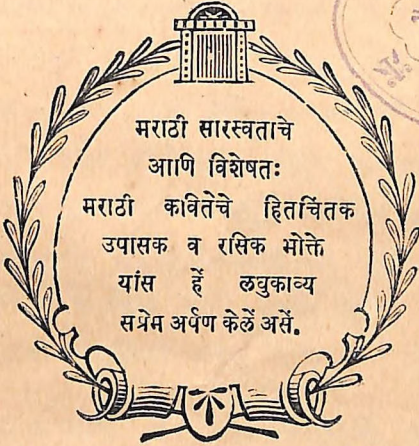 मराठी सारस्वताचे
आणि विशेषतः
मराठी कवितेचे हितचिंतक
उपासक व रसिक भोक्ते
यांस हें लघुकाव्य
सप्रेम अर्पण केलें असें.